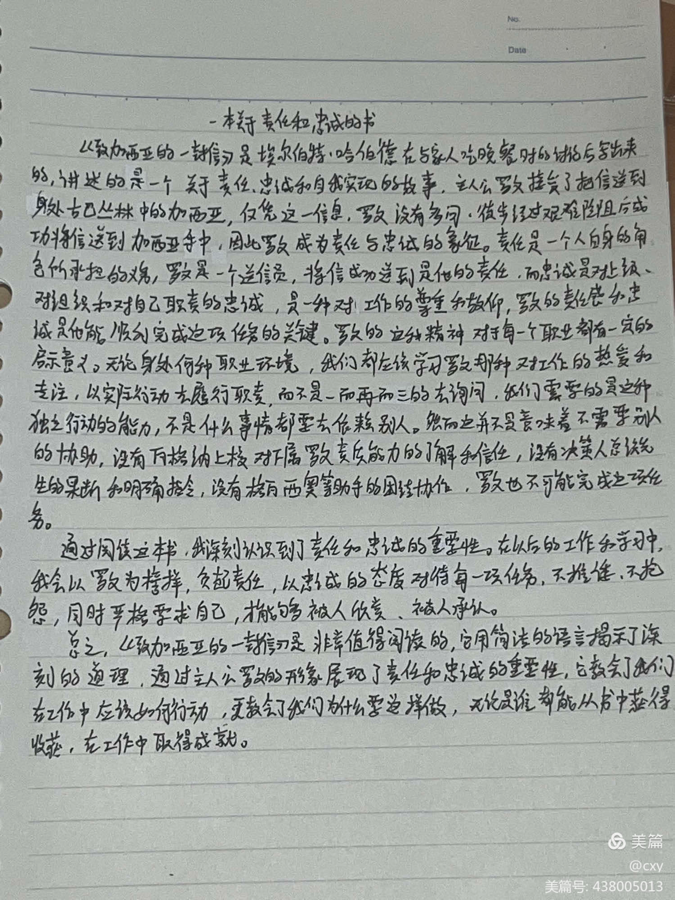 No.
Date
一本关于责任和忠诚的书
《致加西亚的一封信》是埃尔伯特·哈伯德在与家人吃晚餐时的讨论后写出来
的,讲述的是一个关于责任、忠诚和自我实现的故事,主人公罗文接受了把信送到
身处古巴丛林中的加西亚,仅凭这一信息,罗文没有多问,徒步经过艰难险阻后成
功将信送到加西亚手中,因此罗文成为责任与忠诚的象征。责任是一个人自身的角
色所承担的义务,罗文是一个送信员,将信成功送到是他的责任,而忠诚是对上级、
对组织和对自己职责的忠诚,是一种对工作的尊重和敬仰,罗文的责任感和忠
诚是他能顺利完成这项任务的关键。罗文的这种精神对于每一个职业都有一定的
启示意义。无论身处何种职业环境,我们都应该学习罗文那种对工作的热爱和
专注,以实际行动去履行职责,而不是一而再而三的去询问,我们需要的是这种
独立行动的能力,不是什么事情都要去依赖别人。然而这并不是意味着不需要别人
的协助,没有瓦格纳上校对下属罗文素质能力的了解和信任,没有决策人总统先
生的果断和明确指令,没有格瓦西奥等助手的团结协作,罗文也不可能完成这项任
务。
通过阅读这本书,我深刻认识到了责任和忠诚的重要性。在以后的工作和学习中,
我会以罗文为榜样,负起责任,以忠诚的态度对待每一项任务,不推诿、不抱
怨,同时严格要求自己,才能够被人依靠、被人承认。
总之,《致加西亚的一封信》是非常值得阅读的,它用简洁的语言揭示了深
刻的道理,通过主人公罗文的形象展现了责任和忠诚的重要性,它教会了我们
在工作中应该如何行动,更教会了我们为什么要这样做,无论是谁都能从书中获得
收获,在工作中取得成就。
美篇
@cxy
美篇号: 438005013